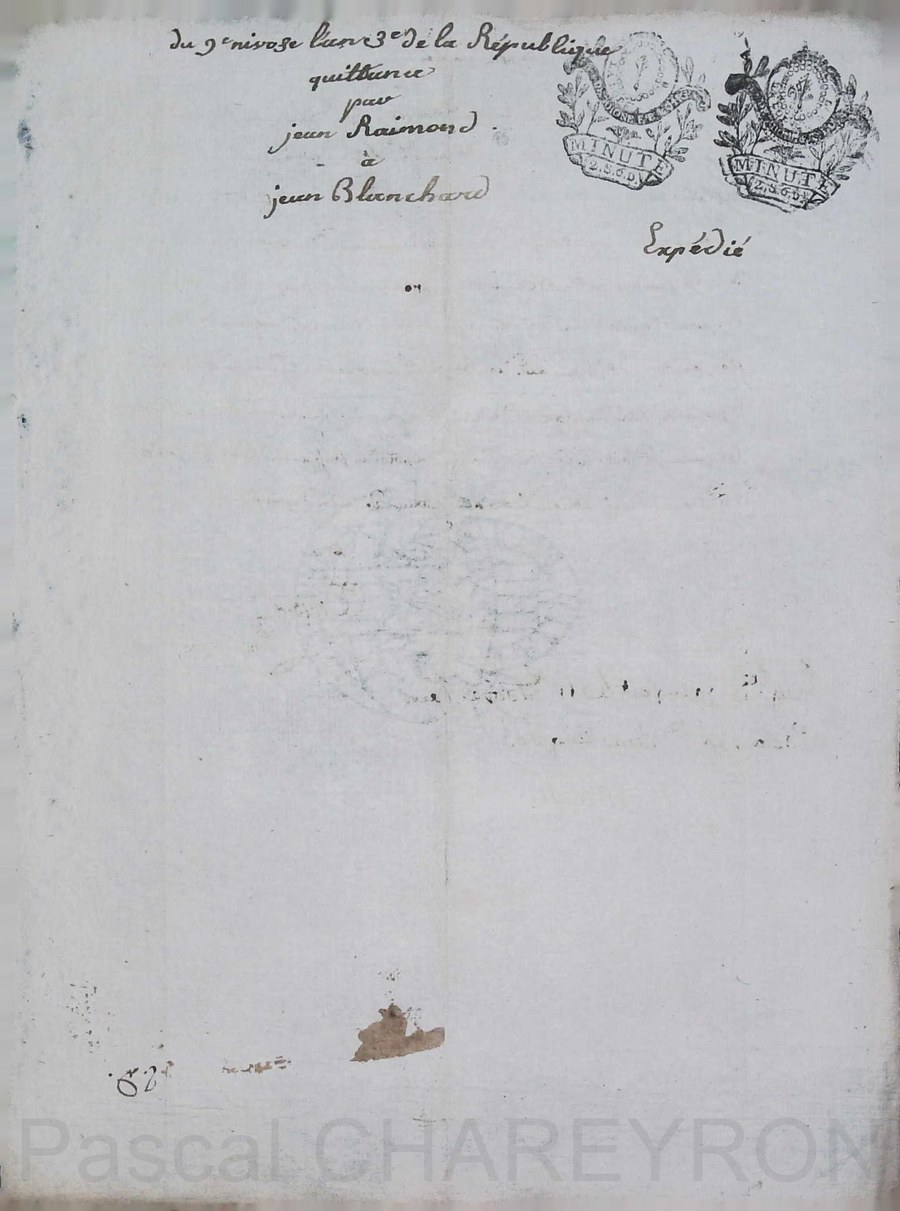 du 9e nivose l'an 3e de la République
quittance
par
jean Raimond
à
jean Blanchard
MINUTE
2.S.6.D.
MINUTE
2.S.6.D.
Expédié
Pascal CHAREYRON